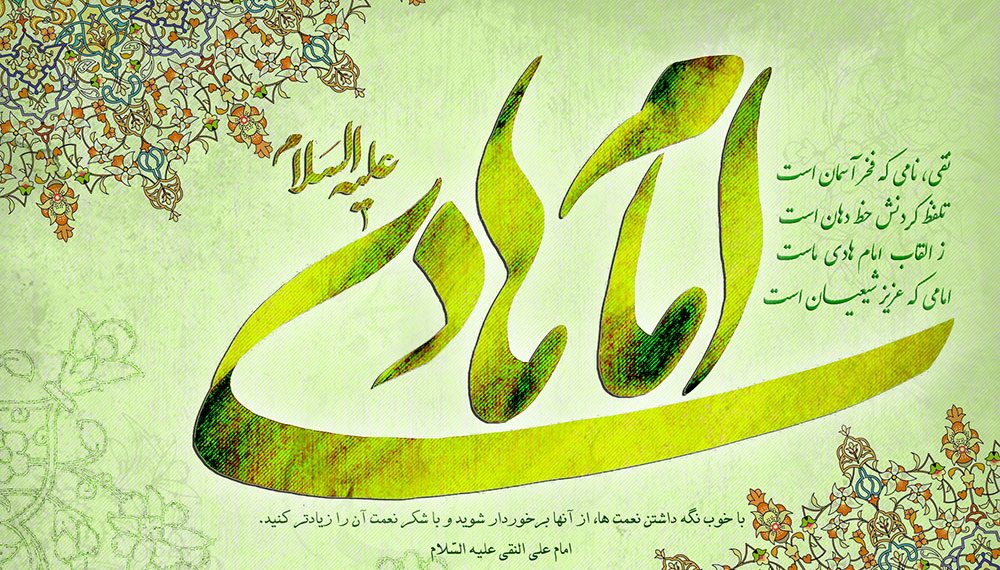 امام هادی
علیه السلام
نقی، نامی که فخر آسمان است
تلفظ کردنش حظ دهان است
ز القاب امام هادی ماست
امامی که عزیز شیعیان است
با خوب نگه داشتن نعمت ها، از آنها برخوردار شوید و با شکر نعمت آن را زیادتر کنید.
امام علی النقی علیه السّلام